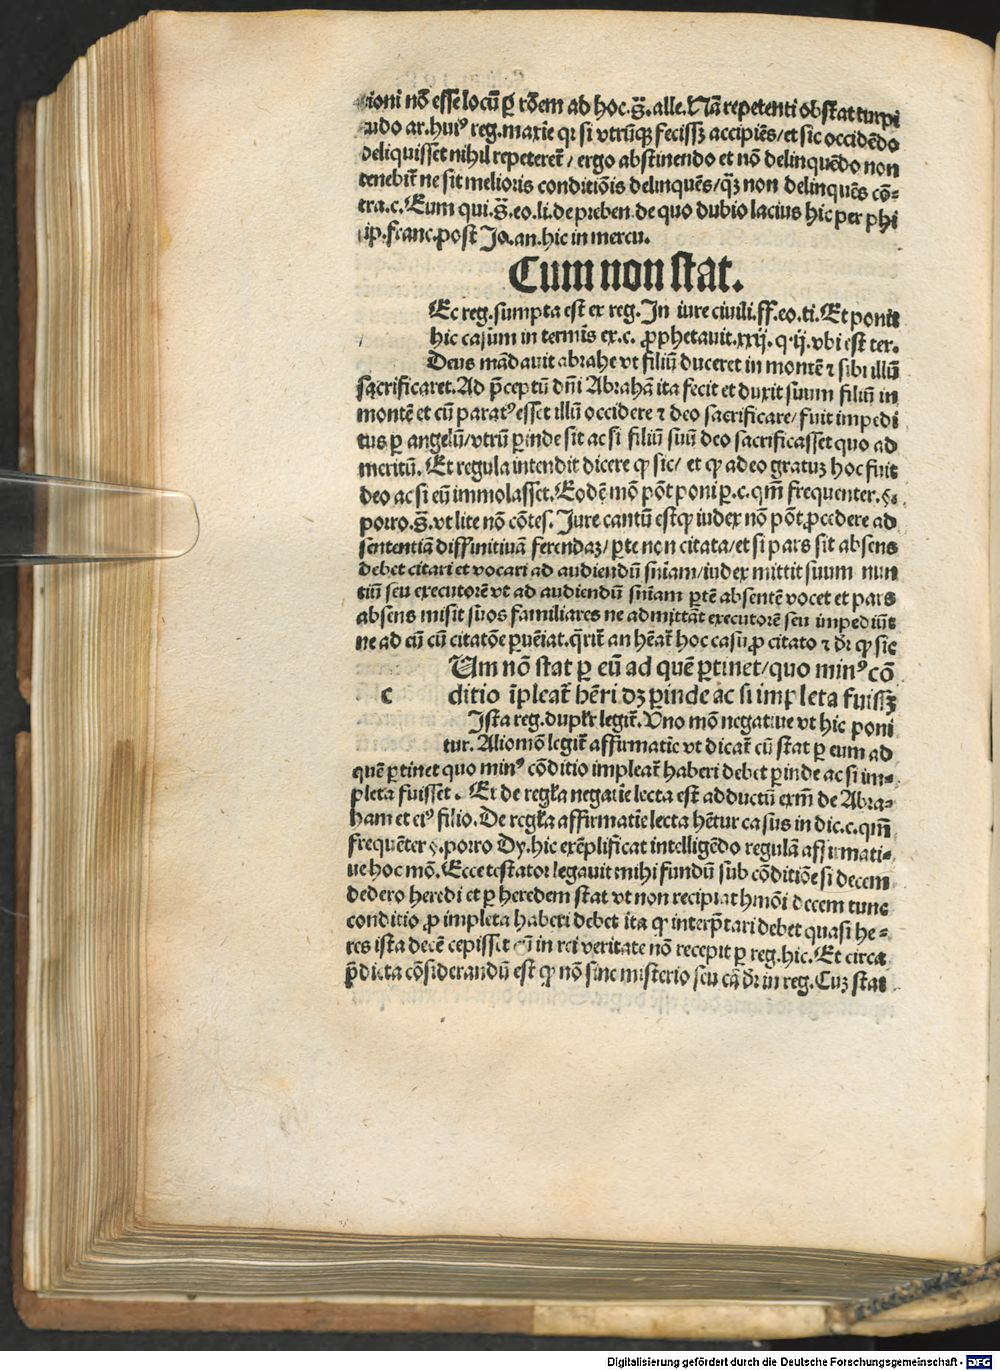 tioni nō esse locū ꝑ rōem ad hoc.s̄.alle.Nā repetenti obstat turpi
tudo ar.huiꝰ reg.maxie qꝛ si vtrūqꝫ fecissꝫ accipiēs/et sic occidēdo
deliquisset nihil repeteret̄/ ergo abstinendo et nō delinquēdo non
tenebit̄ ne sit melioris conditiōis delinquēs/q̄ꝫ non delinquēs cō⸗
tra.c.Eum qui.s̄.eo.li.de preben.de quo dubio lacius hic per phi
lip.franc.post Jo.an.hic in mercu.
Cum non stat.
Ec reg.sumpta est ex reg.In iure ciuili.ff.eo.ti.Et ponit
hic casum in termīs ex.c. ꝓphetauit.xxij.q.ij.vbi est ter.
Deus mādauit abrahe vt filiū duceret in montē ⁊ sibi illū
sacrificaret.Ad p̄ceptū dn̄i Abrahā ita fecit et duxit suum filiū in
montē et cū paratꝰ esset illū occidere ⁊ deo sacrificare/fuit impedi
tus ꝑ angelū/vtrū ꝑinde sit ac si filiū suū deo sacrificasset quo ad
meritū. Et regula intendit dicere ꝙ sic/ et ꝙ adeo gratuꝫ hoc fuit
deo ac si eū immolasset.Eodē mō pōt poni ꝑ.c.qm̄ frequenter.§.
porro.s̄.vt lite nō cōtes. Jure cantū est ꝙ iudex nō pōt ꝓcedere ad
sententiā diffinitiuā ferendaꝫ/ ꝑte non citata/et si pars sit absens
debet citari et vocari ad audiendū sn̄iam/iudex mittit suum nun
tiū seu executorē vt ad audiendū sn̄iam ꝑtē absentē vocet et pars
absens misit suos familiares ne admittāt executorē seu impediūt
ne ad eū cū citatōe ꝑuēiat.q̄rit̄ an hēat̄ hoc casu ꝓ citato ⁊ dr̄ ꝙ sic
Um nō stat ꝑ eū ad quē ꝑtinet/quo minꝰ cō
c ditio īpleat̄ hēri dꝫ ꝑinde ac si impleta fuissꝫ
Ista reg.duplr̄ legit̄.Uno mō negatiue vt hic poni
tur. Alio mō legit̄ affirmatie vt dicat̄ cū stat ꝑ eum ad
quē ꝑtinet quo minꝰ cōditio impleat̄ haberi debet ꝑinde ac si im⸗
pleta fuisset. Et de regl̄a negatie lecta est adductū exm̄ de Abra⸗
ham et eiꝰ filio. De regl̄a affirmatie lecta hēntur casus in dic.c.qm̄
frequēter §.porro Dy.hic exēplificat intelligēdo regulā affirmati⸗
ue hoc mō. Ecce testator legauit mihi fundū sub cōditiōe si decem
dedero heredi et ꝑ heredem stat vt non recipiat hm̄ōi decem tunc
conditio ꝓ impleta haberi debet ita ꝙ interp̄tari debet quasi he⸗
res ista decē cepisset cū in rei veritate nō recepit ꝑ reg.hic. Et circa
p̄dicta cōsiderandū est ꝙ nō sine misterio seu cā dr̄ in reg. Cuꝫ stat
Digitalisierung gefördert durch die Deutsche Forschungsgemeinschaft - DFG